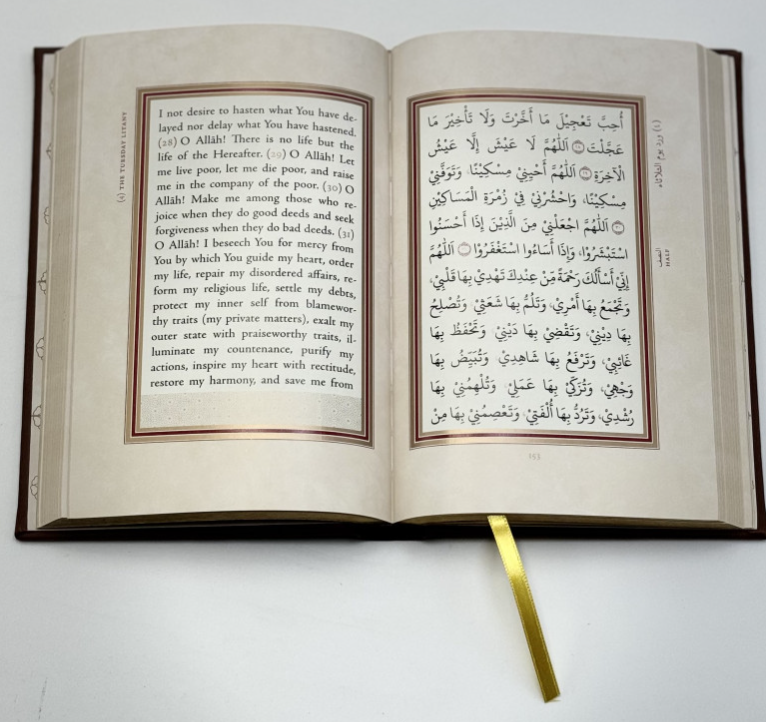 (2) THE TUESDAY LITANY
I not desire to hasten what You have de-
layed nor delay what You have hastened.
(28) O Allāh! There is no life but the
life of the Hereafter. (29) O Allāh! Let
me live poor, let me die poor, and raise
me in the company of the poor. (30) O
Allāh! Make me among those who re-
joice when they do good deeds and seek
forgiveness when they do bad deeds. (31)
O Allāh! I beseech You for mercy from
You by which You guide my heart, order
my life, repair my disordered affairs, re-
form my religious life, settle my debts,
protect my inner self from blamewor-
thy traits (my private matters), exalt my
outer state with praiseworthy traits, il-
luminate my countenance, purify my
actions, inspire my heart with rectitude,
restore my harmony, and save me from
أُحِبَّ تَعْجِيْلَ مَا أَخَّرْتَ وَلَا تَأْخِيْرَ مَا
عَجَّلْتَ اَللّٰهُمَّ لَا عَيْشَ إِلَّا عَيْشُ
الْآخِرَةِ اَللّٰهُمَّ أَحْيِنِيْ مِسْكِيْنًا، وَتَوَفَّنِيْ
مِسْكِيْنًا، وَاحْشُرْنِيْ فِيْ زُمْرَةِ الْمَسَاكِيْنِ
اَللّٰهُمَّ اجْعَلْنِيْ مِنَ الَّذِيْنَ إِذَا أَحْسَنُوا
اسْتَبْشَرُوْا، وَإِذَا أَسَاءُوا اسْتَغْفَرُوْا اَللّٰهُمَّ
إِنِّيْ أَسْأَلُكَ رَحْمَةً مِّنْ عِنْدِكَ تَهْدِيْ بِهَا قَلْبِيْ،
وَتَجْمَعُ بِهَا أَمْرِيْ، وَتَلُمُّ بِهَا شَعَثِيْ، وَتُصْلِحُ
بِهَا دِيْنِيْ، وَتَقْضِيْ بِهَا دَيْنِيْ، وَتَحْفَظُ بِهَا
غَائِبِيْ، وَتَرْفَعُ بِهَا شَاهِدِيْ، وَتُبَيِّضُ بِهَا
وَجْهِيْ، وَتُزَكِّيْ بِهَا عَمَلِيْ، وَتُلْهِمُنِيْ بِهَا
رُشْدِيْ، وَتَرُدُّ بِهَا أُلْفَتِيْ، وَتَعْصِمُنِيْ بِهَا مِنْ
ورد يوم الثلاثاء
النصف
HALF
153